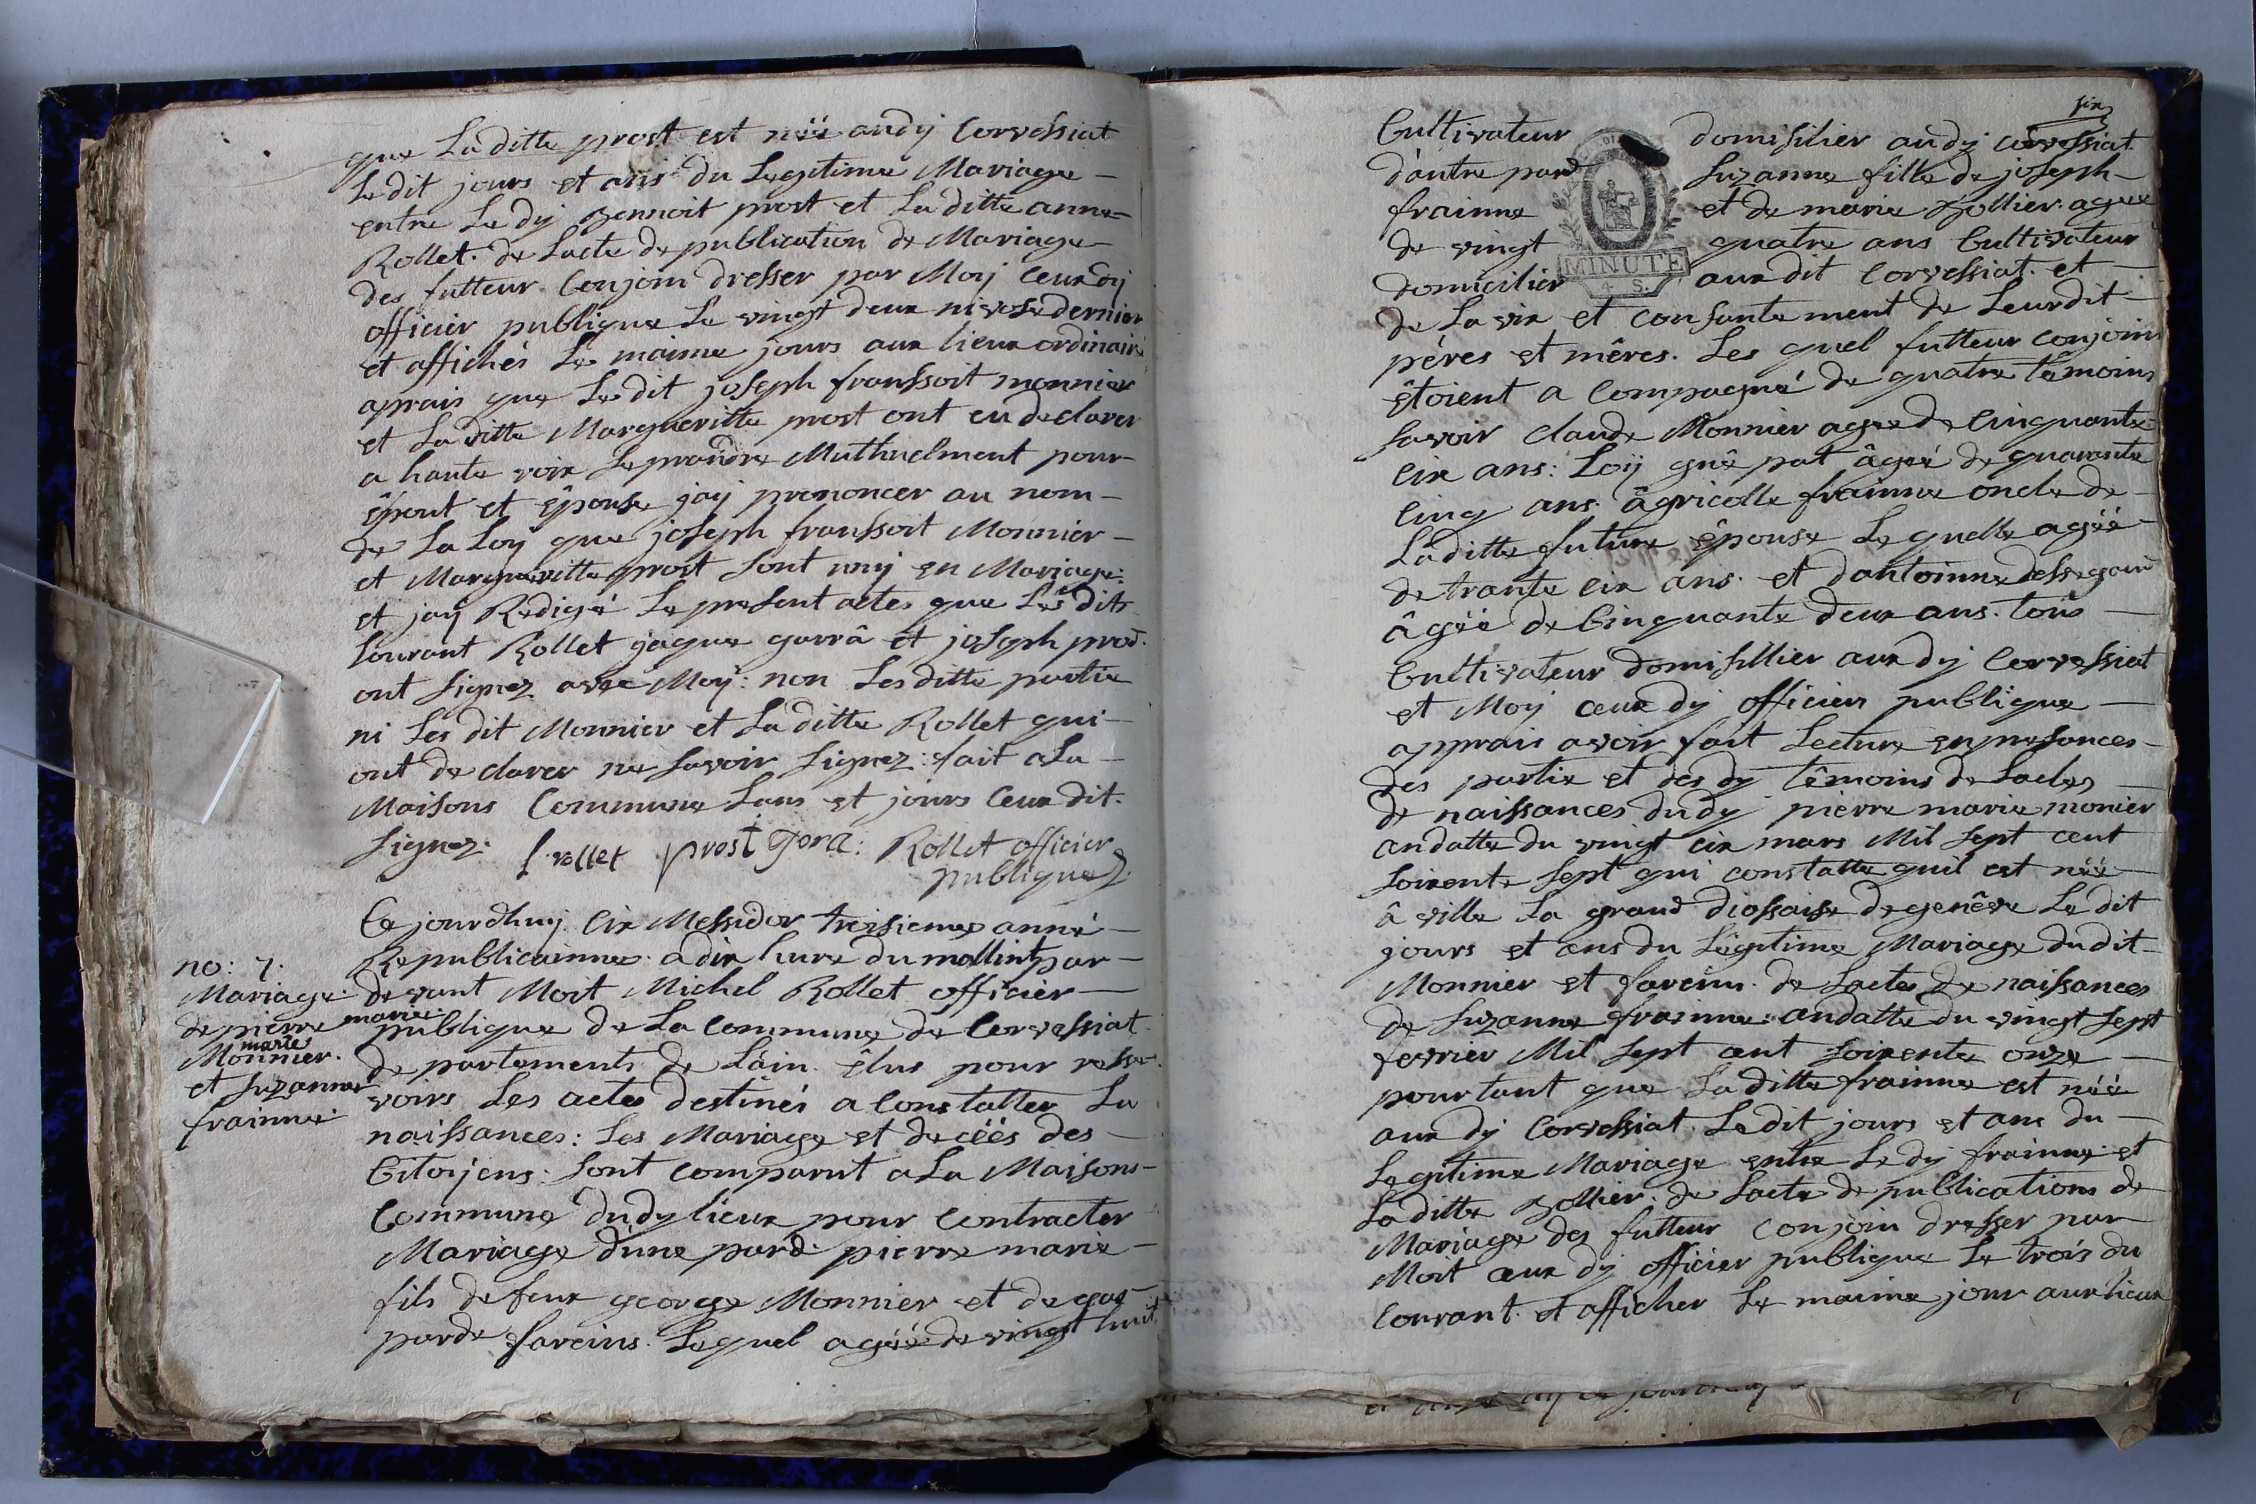 que Laditte prost est néé audij Corvessiat
Ledit jours et ans du Legitime Mariage
entre Le dij Bennoit prost et Laditte anne
Rollet. de Lacte de publication de Mariage
des futteur Conjoin dresser par Moij Ceuxdij
officier publique Le vingt deux nivose dernier
et affichés Le maime jours aux lieux ordinaire
aprais que Ledit joseph franssoit monnier
et Laditte Margueritte prost ont eu declarer
a haute voix Seprandre Muthuelment pour
épout et épouse jaij prononcer au nom
de La Loy que joseph franssoit Monnier
et Margueritte prost sont unij en Mariage:
et jaij Redigé Le present actes que Les dits
Lourant Rollet jaque garrâ et joseph prost
ont signez avec Moij: non Lesditte partie
ni Les dit Monnier et Laditte Rollet qui
ont declarer ne savoir signez: fait a La
Maisons Commune Lans et jours Ceux dit.
signez. l. rollet prost gora: Rollet officier
publique
Ce jourdhuij six Messidor troisieme anné
Republicainne a dix hure du mattint par
devant Moit Michel Rollet officier
publique de La Commune de Corvessiat
departements de Láin. élus pour resse
voirs Les actes destinés a Constatter La
naissances: Les Mariage et decéés des
Citoijens: sont comparut a La Maisons
Commune dudij lieux pour Contracter
Mariage dune pard pierre marie
fils de feux george Monnier et de gas
parde fareins. Lequel agéé de vingt huit
no: 7.
Mariage
de pierre marie
marie
Monnier.
et Suzanne
frainne.
six
Cultivateur domisilier audij corvessiat
dautre pard Suzanne fille de joseph
frainne et de marie Bollier. ageé
de vingt quatre ans Cultivateur
domicilier aux dit Corvessiat. et
MINUTE
4 S.
de Lavix et consantement de Leurdit
péres et mêres. Les quel futteur conjoins
étoient a Compagné de quatre témoins
savoir claude Monnier agee de Cinquante
six ans: Loij guêpat âgeé de quarante
cinq ans. âgricolle frainne oncle de
Laditte future épouse Lequelle agéé
de trante six ans. et dantoinne dessegard
âgéé de Cinquante deux ans. tous
Cultivateur domisillier auxdij Corvessiat
et Moij ceux dij officiers publique
apprais avoir fait Lecture en presances
des partie et des dij témoins de Lactes
de naissances dudij pierre marie monier
andatte du vingt six mars Mil sept cent
soixente sept qui constatte quil est néé
â ville La grand diossaise de genêve Le dit
jours et ans du Légitime Mariage dudit
Monnier et fareins. de Lactes de naissances
de Suzanne frainne: andatte du vingt sept
fevrier Mil sept cent soixente onze
pourtant que Laditte frainne est néé
aux dij Corvessiat Ledit jours et ans du
Legitime Mariage entre Ledij frainne et
Laditte Bollier. de Lacte de publications de
Mariage des futteur conjoin dresser par
Moit ceux dij officier publique Le trois du
Courant. et afficher Le maime jour aux lieux